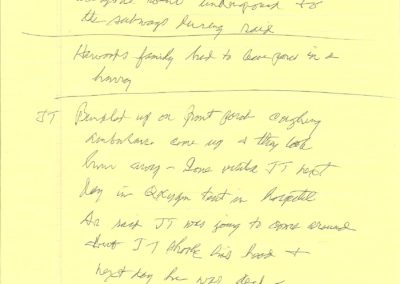 went underground to
the subways during raid
Harwoods family had to leave in a
hurry
JT Bundled up on front porch coughing
ambulance come up & they took
him away - Zone visited JT next
day in Oxygen tent in hospital
Dr said JT was going to come around
but JT shook his head &
next day he was dead -